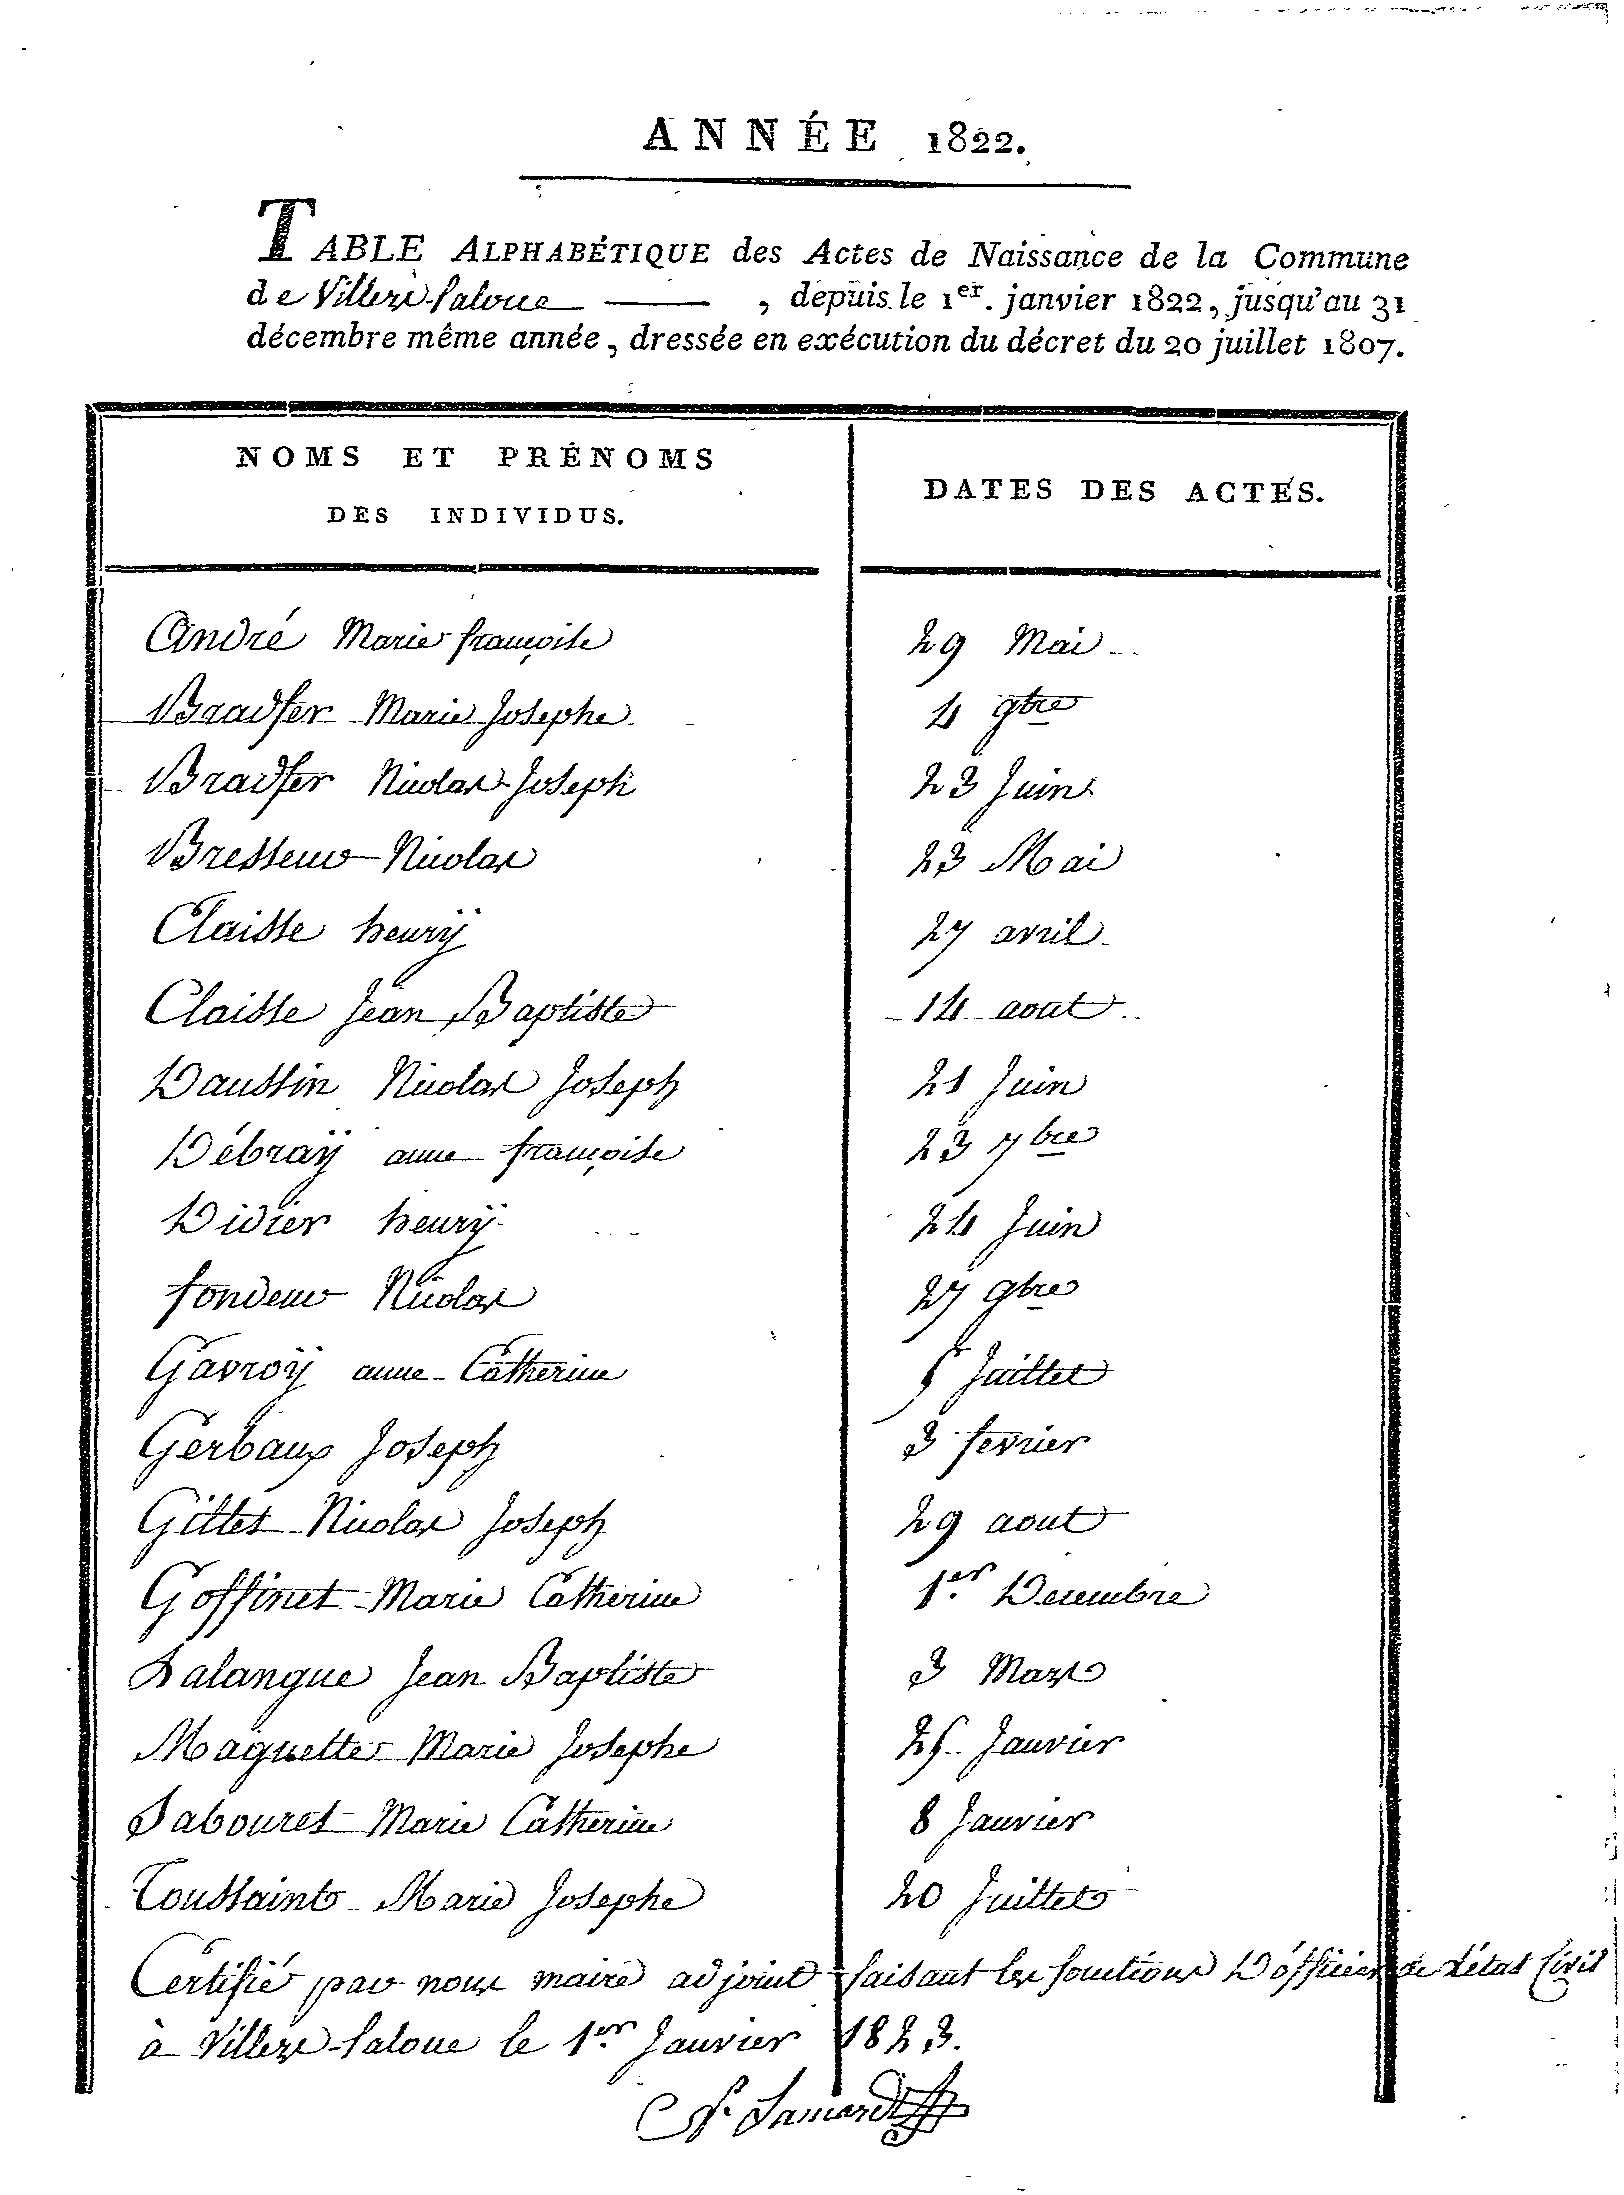 ANNÉE 1822.
TABLE ALPHABÉTIQUE des Actes de Naissance de la Commune
de Villers-laloue , depuis le 1er. janvier 1822, jusqu'au 31
décembre même année, dressée en exécution du décret du 20 juillet 1807.
NOMS ET PRÉNOMS
DES INDIVIDUS.
DATES DES ACTES.
André Marie françoise 29 Mai
Bradfer Marie Josephe 4 9bre
Bradfer Nicolas Joseph 23 Juin
Nicolas 23 Mai
Claisse henrÿ 27 avril
Claisse Jean Baptiste 14 aout
Daussin Nicolas Joseph 21 Juin
Débraÿ anne françoise 23 7bre
Didier henrÿ 24 Juin
Nicolas 27 9bre
Gavroÿ anne Catherine 5 Juillet
Gerbaux Joseph 3 fevrier
Gilles Nicolas Joseph 29 aout
Goffinet Marie Catherine 1er Decembre
Lalangue Jean Baptiste 3 Mars
Maquette Marie Josephe 25 Janvier
Sabouret Marie Catherine 8 Janvier
Toussaint Marie Josephe 20 Juillet
Certifié par nous maire adjoint faisant les fonctions D'officier de l'état Civil
à Villers-laloue le 1er Janvier 1823.